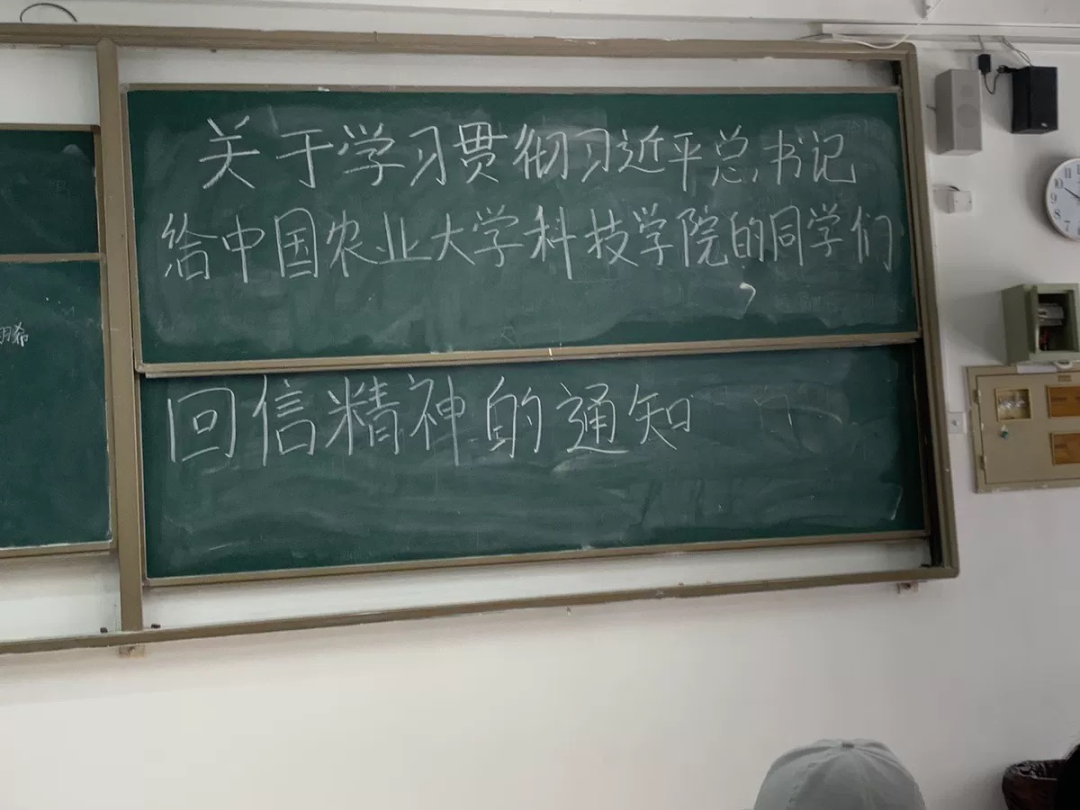 关于学习贯彻习近平总书记
给中国农业大学科技学院的同学们
回信精神的通知